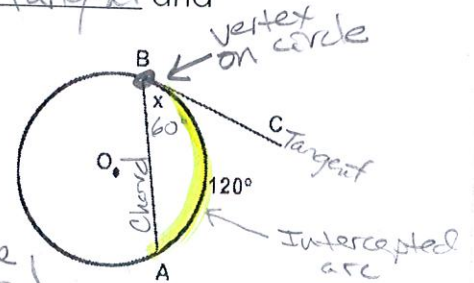 and
vertex
on circle
B
x
60°
C
Tangent
O
Chord
120°
Intercepted
arc
A